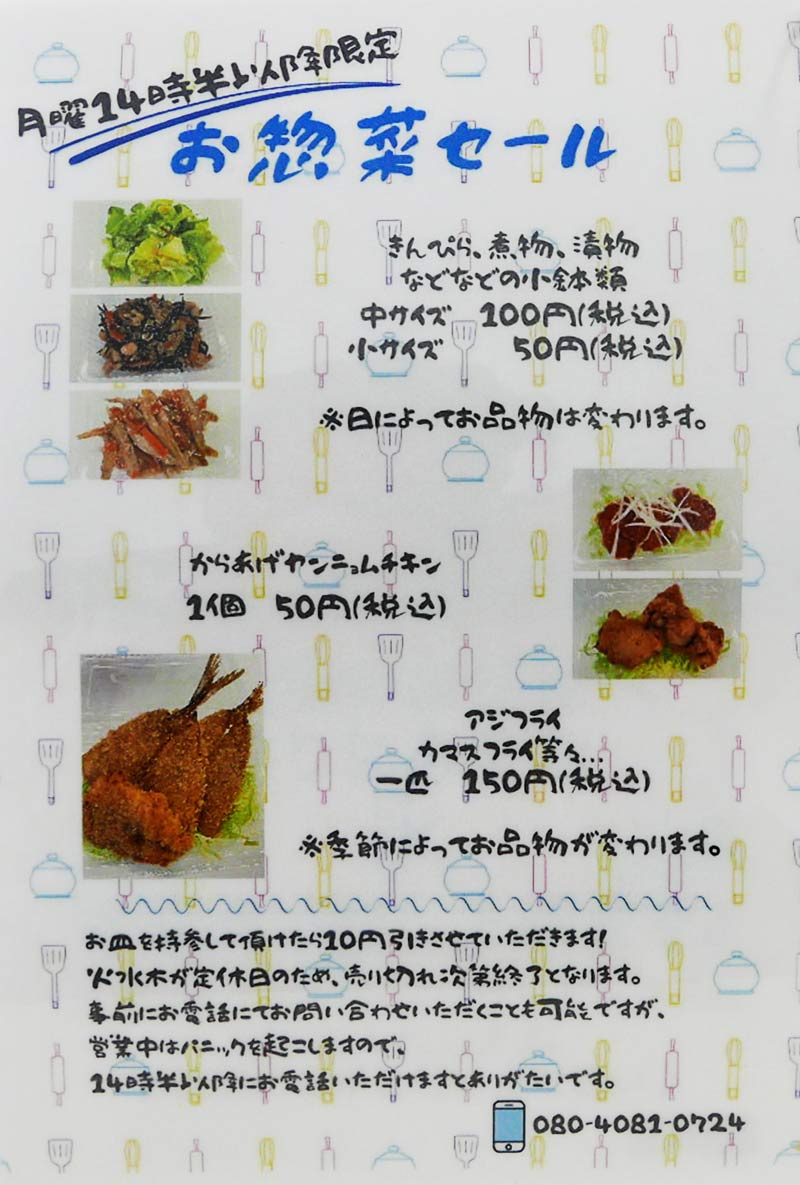 月曜14時半以降限定
お惣菜セール
きんぴら、煮物、漬物
などなどの小鉢類
中サイズ 100円(税込)
小サイズ 50円(税込)
※日によってお品物は変わります。
からあげヤンニョムチキン
1個 50円(税込)
アジフライ
カマスフライ等々...
一匹 150円(税込)
※季節によってお品物が変わります。
お皿を持参して頂けたら10円引きさせていただきます!
火水木が定休日のため、売り切れ次第終了となります。
事前にお電話にてお問い合わせいただくことも可能ですが、
営業中はパニックを起こしますので、
14時半以降にお電話いただけますとありがたいです。
080-4081-0724